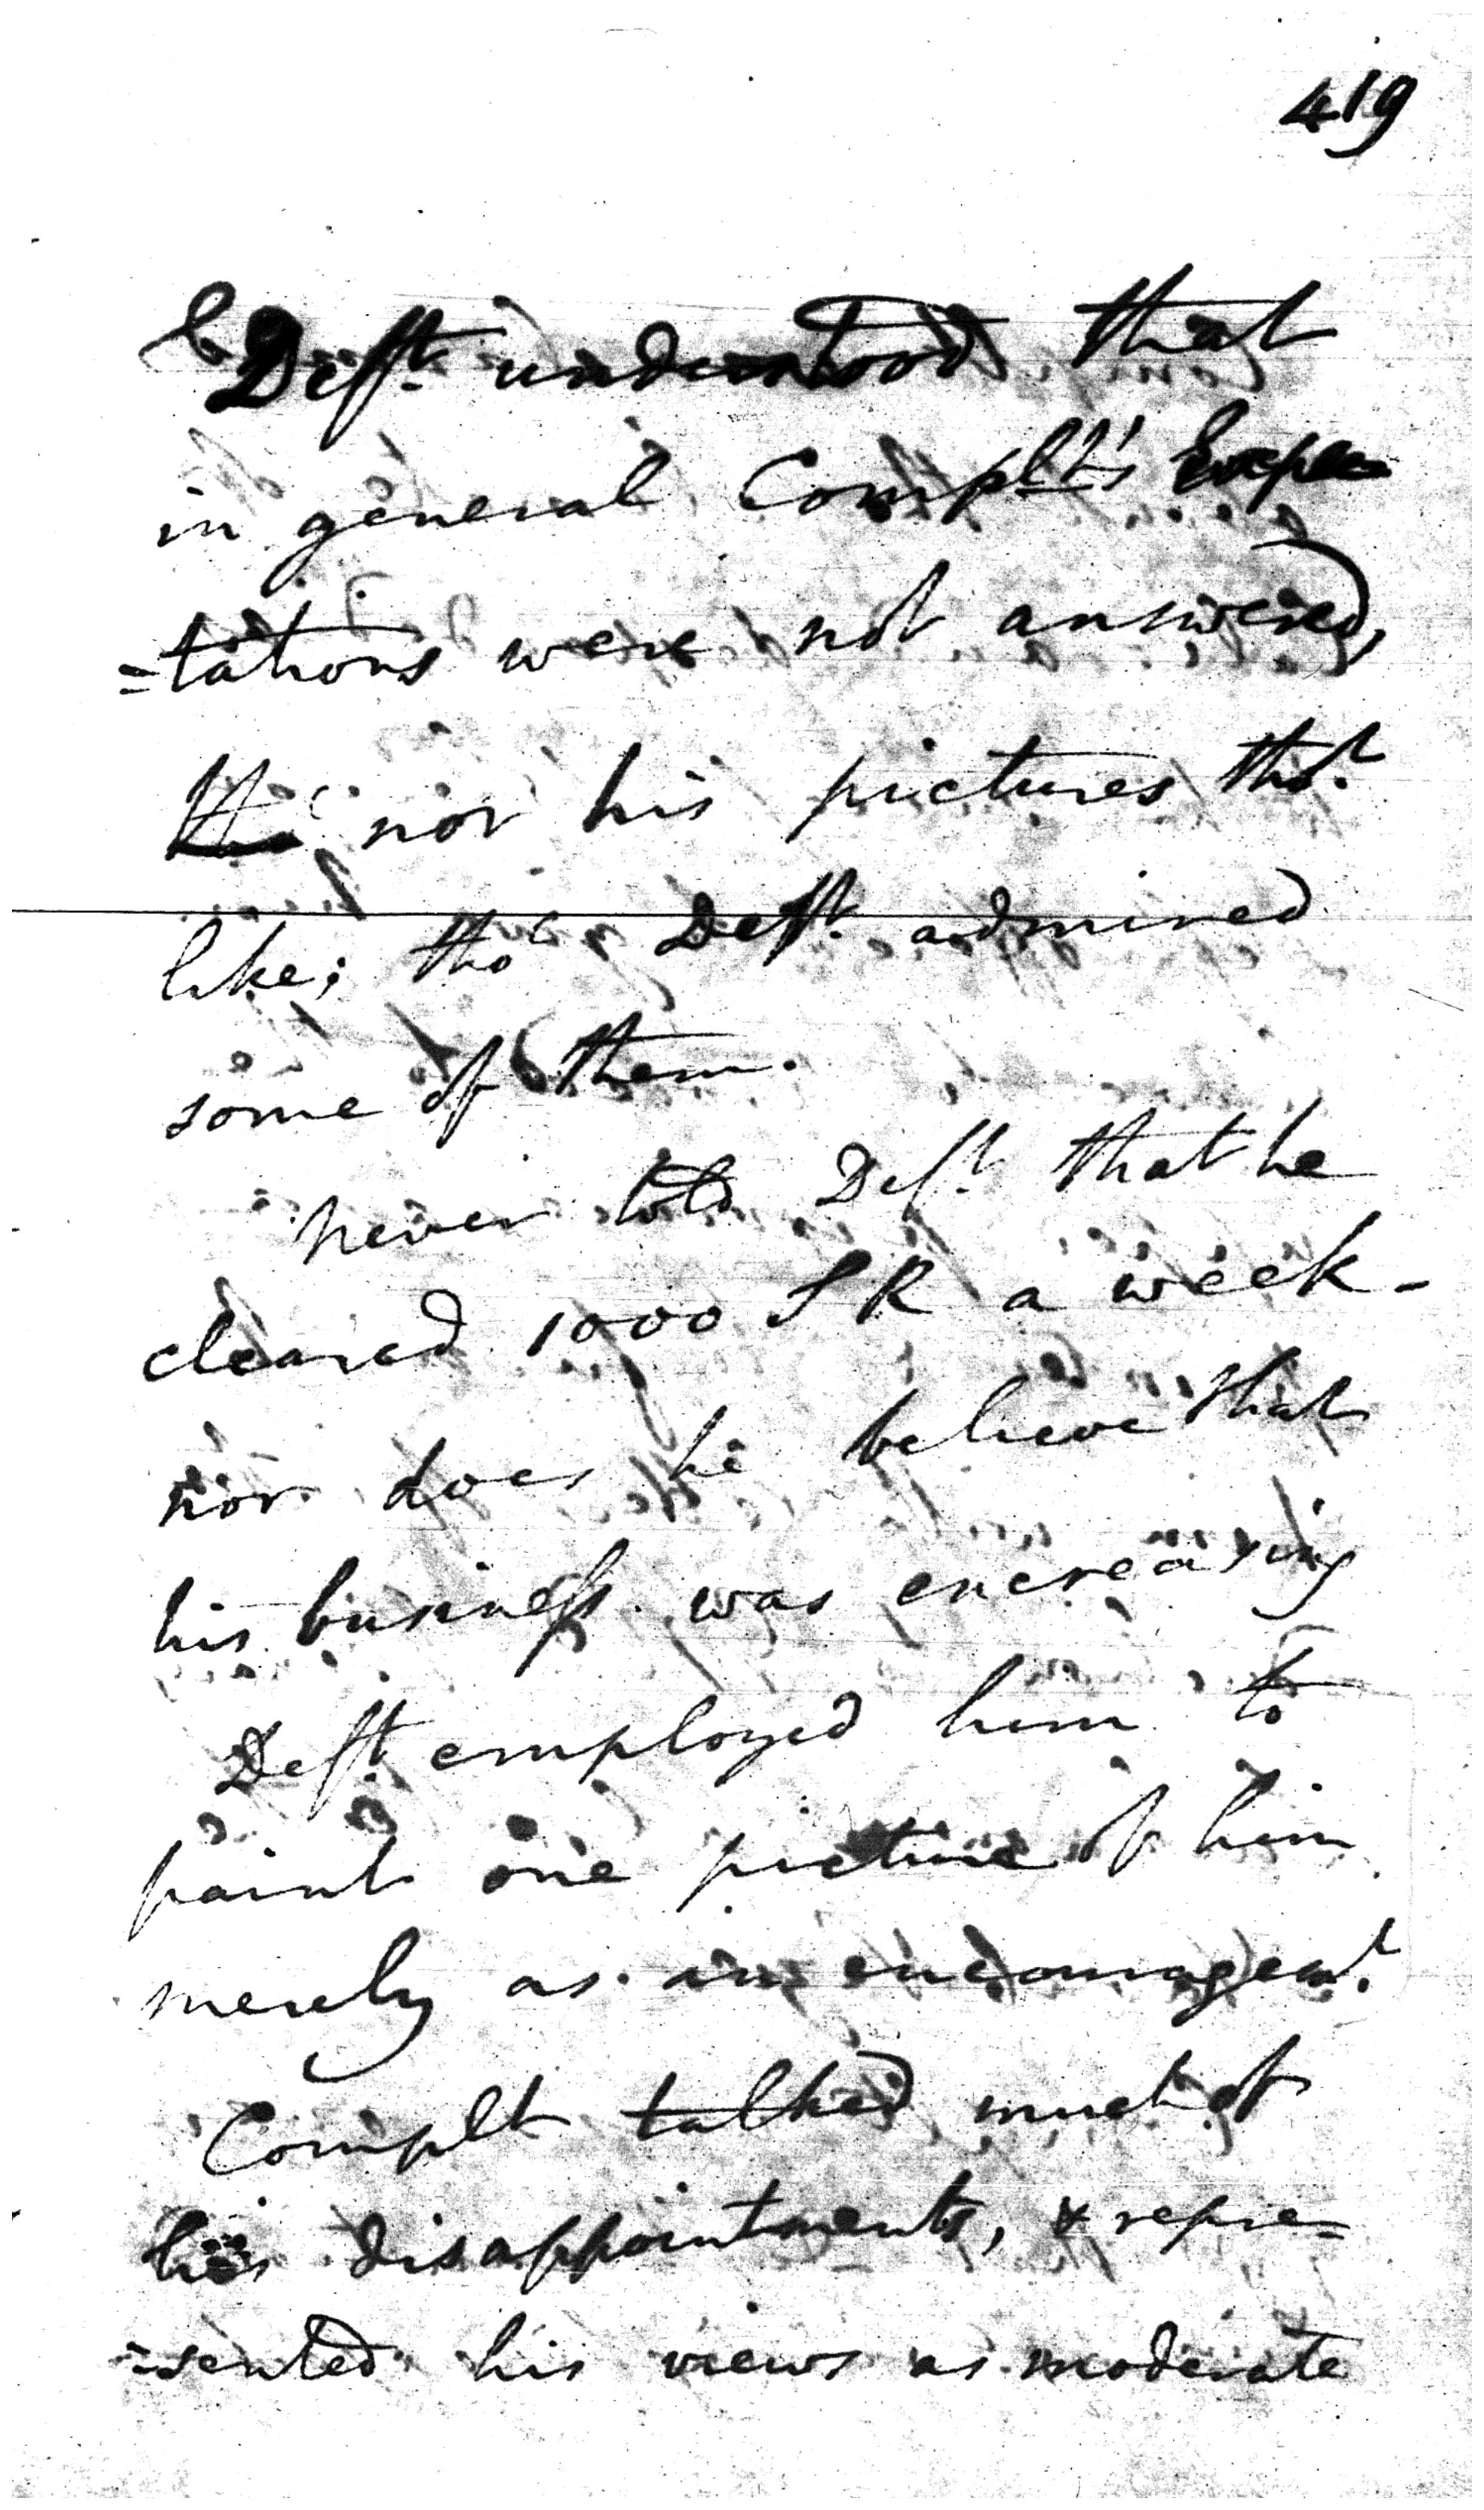 419
& Deft. understood that
in general Complt's Expec
=tations were not answered,
nor his pictures tho.t
like; tho' Deft. admired
some of them.
never told Deft. that he
cleared 1000 SR a week -
nor does he believe that
his business was encreasing
Deft. employed him to
paint one picture of him
merely as an encouragem.t
Complt talked much of
his disappointments, & repre=
=sented his views as moderate